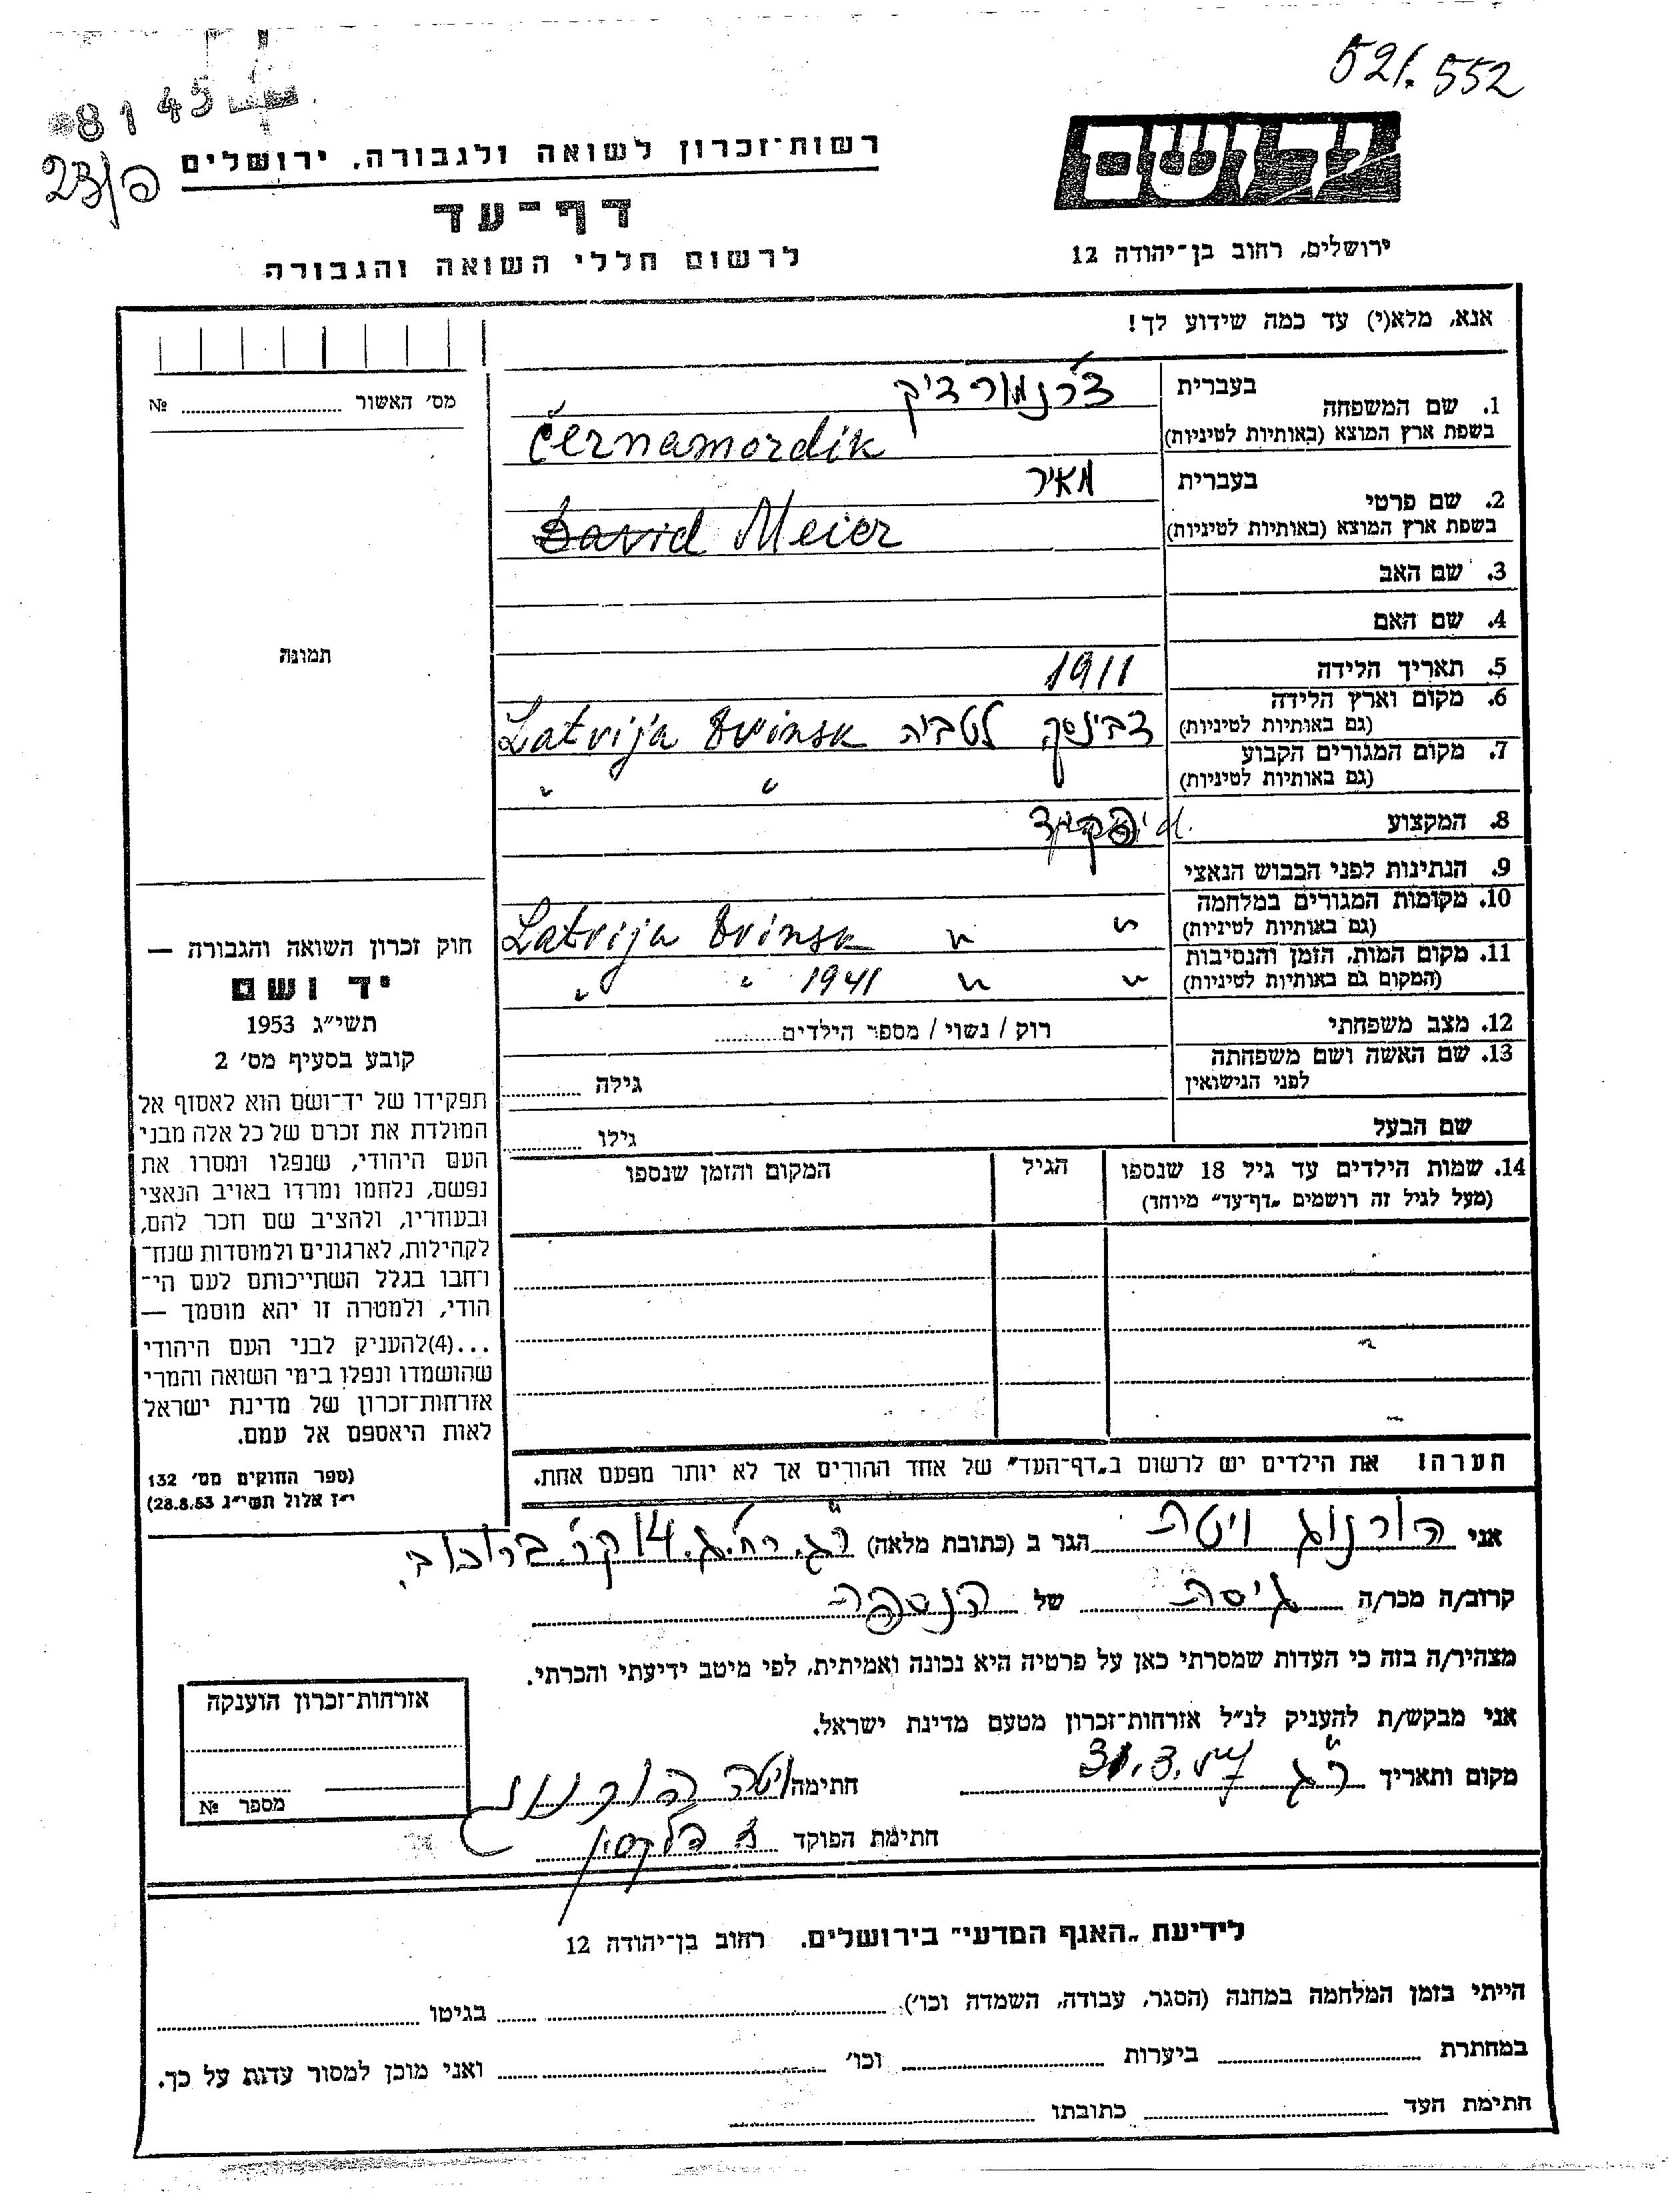 521.552
8145
23/פ
יד ושם
רשות־זכרון לשואה ולגבורה, ירושלים
דף־עד
לרשום חללי השואה והגבורה
ירושלים, רחוב בן־יהודה 12
אנא, מלא(י) עד כמה שידוע לך!
מס׳ האשור № 
תמונה
1. שם המשפחה בעברית צ׳רנמורדיק
בשפת ארץ המוצא (באותיות לטיניות) Černamordik
2. שם פרטי בעברית מאיר
בשפת ארץ המוצא (באותיות לטיניות) David Meier
3. שם האב
4. שם האם
5. תאריך הלידה 1911
6. מקום וארץ הלידה (גם באותיות לטיניות) דבינסק לטביה Latvija Dvinsk
7. מקום המגורים הקבוע (גם באותיות לטיניות) " "
8. המקצוע פקיד
9. הנתינות לפני הכבוש הנאצי
10. מקומות המגורים במלחמה (גם באותיות לטיניות) " " Latvija Dvinsk
11. מקום המות, הזמן והנסיבות (המקום גם באותיות לטיניות) " " 1941 " "
12. מצב משפחתי רוק / נשוי / מספר הילדים
13. שם האשה ושם משפחתה לפני הנישואין גילה
שם הבעל גילו
14. שמות הילדים עד גיל 18 שנספו הגיל המקום והזמן שנספו
(מעל לגיל זה רושמים „דף־עד" מיוחד)
הערה! את הילדים יש לרשום ב„דף־העד" של אחד ההורים אך לא יותר מפעם אחת.
חוק זכרון השואה והגבורה —
יד ושם
תשי״ג 1953
קובע בסעיף מס׳ 2
תפקידו של יד־ושם הוא לאסוף אל
המולדת את זכרם של כל אלה מבני
העם היהודי, שנפלו ומסרו את
נפשם, נלחמו ומרדו באויב הנאצי
ובעוזריו, ולהציב שם וזכר להם,
לקהילות, לארגונים ולמוסדות שנח־
רחבו בגלל השתייכותם לעם הי־
הודי, ולמטרה זו יהא מוסמך —
...(4)להעניק לבני העם היהודי
שהושמדו ונפלו בימי השואה והמרי
אזרחות־זכרון של מדינת ישראל
לאות היאספם אל עמם.
(ספר החוקים מס׳ 132
י״ז אלול תשי״ג 28.8.53)
אני הורנוג ויטה הגר ב (כתובת מלאה) ר״ג, רח׳ ג. 14 קר. ברוכוב.
קרוב/ה מכר/ה גיסת של הנספה
מצהיר/ה בזה כי העדות שמסרתי כאן על פרטיה היא נכונה ואמיתית, לפי מיטב ידיעתי והכרתי.
אני מבקש/ת להעניק לנ״ל אזרחות־זכרון מטעם מדינת ישראל.
מקום ותאריך ר״ג 31.3.57 חתימה ויטה הורנוג
חתימת הפוקד
אזרחות־זכרון הוענקה
מספר №
לידיעת „האגף המדעי" בירושלים. רחוב בן־יהודה 12
הייתי בזמן המלחמה במחנה (הסגר, עבודה, השמדה וכו׳) בגיטו
במחתרת ביערות וכו׳ ואני מוכן למסור עדות על כך.
חתימת העד כתובתו